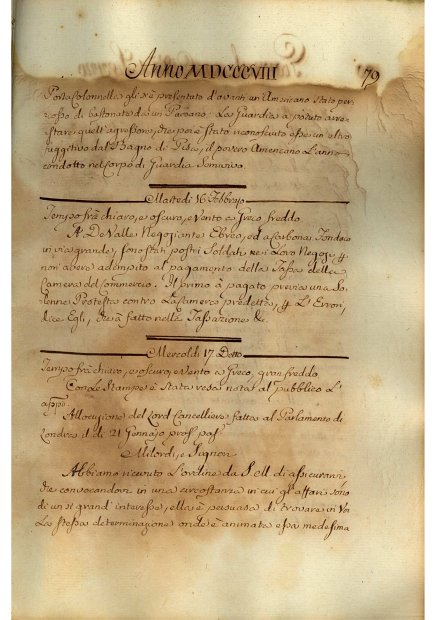 Anno MDCCCVIII 79
Porta Colonnella gli s'è presentato d'avanti un Americano stato per
cosso di bastonate da un Paesano. La Guardia à potuto arre
stare quell'agressore, che poi è stato riconosciuto esser un altro
fuggitivo dal Bagno di Pisa, il povero Americano l'anno
condotto nel Corpo di Guardia semivivo.
Martedì 16 Febbrajo
Tempo frà chiaro, e oscuro, e Vento a Greco freddo
A DeValle Negoziante Ebreo, ed a Carbonai Fondaco
in via grande, sono stati postri Soldati nei Loro Negozj, p
non avere adempito al pagamento della Tassa della
Camera del Commercio. Il primo à pagato previa una So
lenne Protesta contro La Camera predetta, p L'Errori,
dice Egli, che à fatto nelle Tassazione &
Mercoldì 17 Detto
Tempo frà chiaro, e oscuro e Vento a Greco, gran freddo
Con Le Stampe è Stata resa nota al pubblico L'
app.
Allocuzione del Lord Cancelliere fatta al Parlamento di
Londra il dì 21 Gennajo pros. pas.
Milordi, e Signori
Abbiamo ricevuto L'ordine da S. M. di assicurarvi,
che convocandovi in una circostanza in cui gl'affari sono
di un sì grand interesse, ella è persuasa di trovare in Voi
La stessa determinazione onde è animata essa medesima